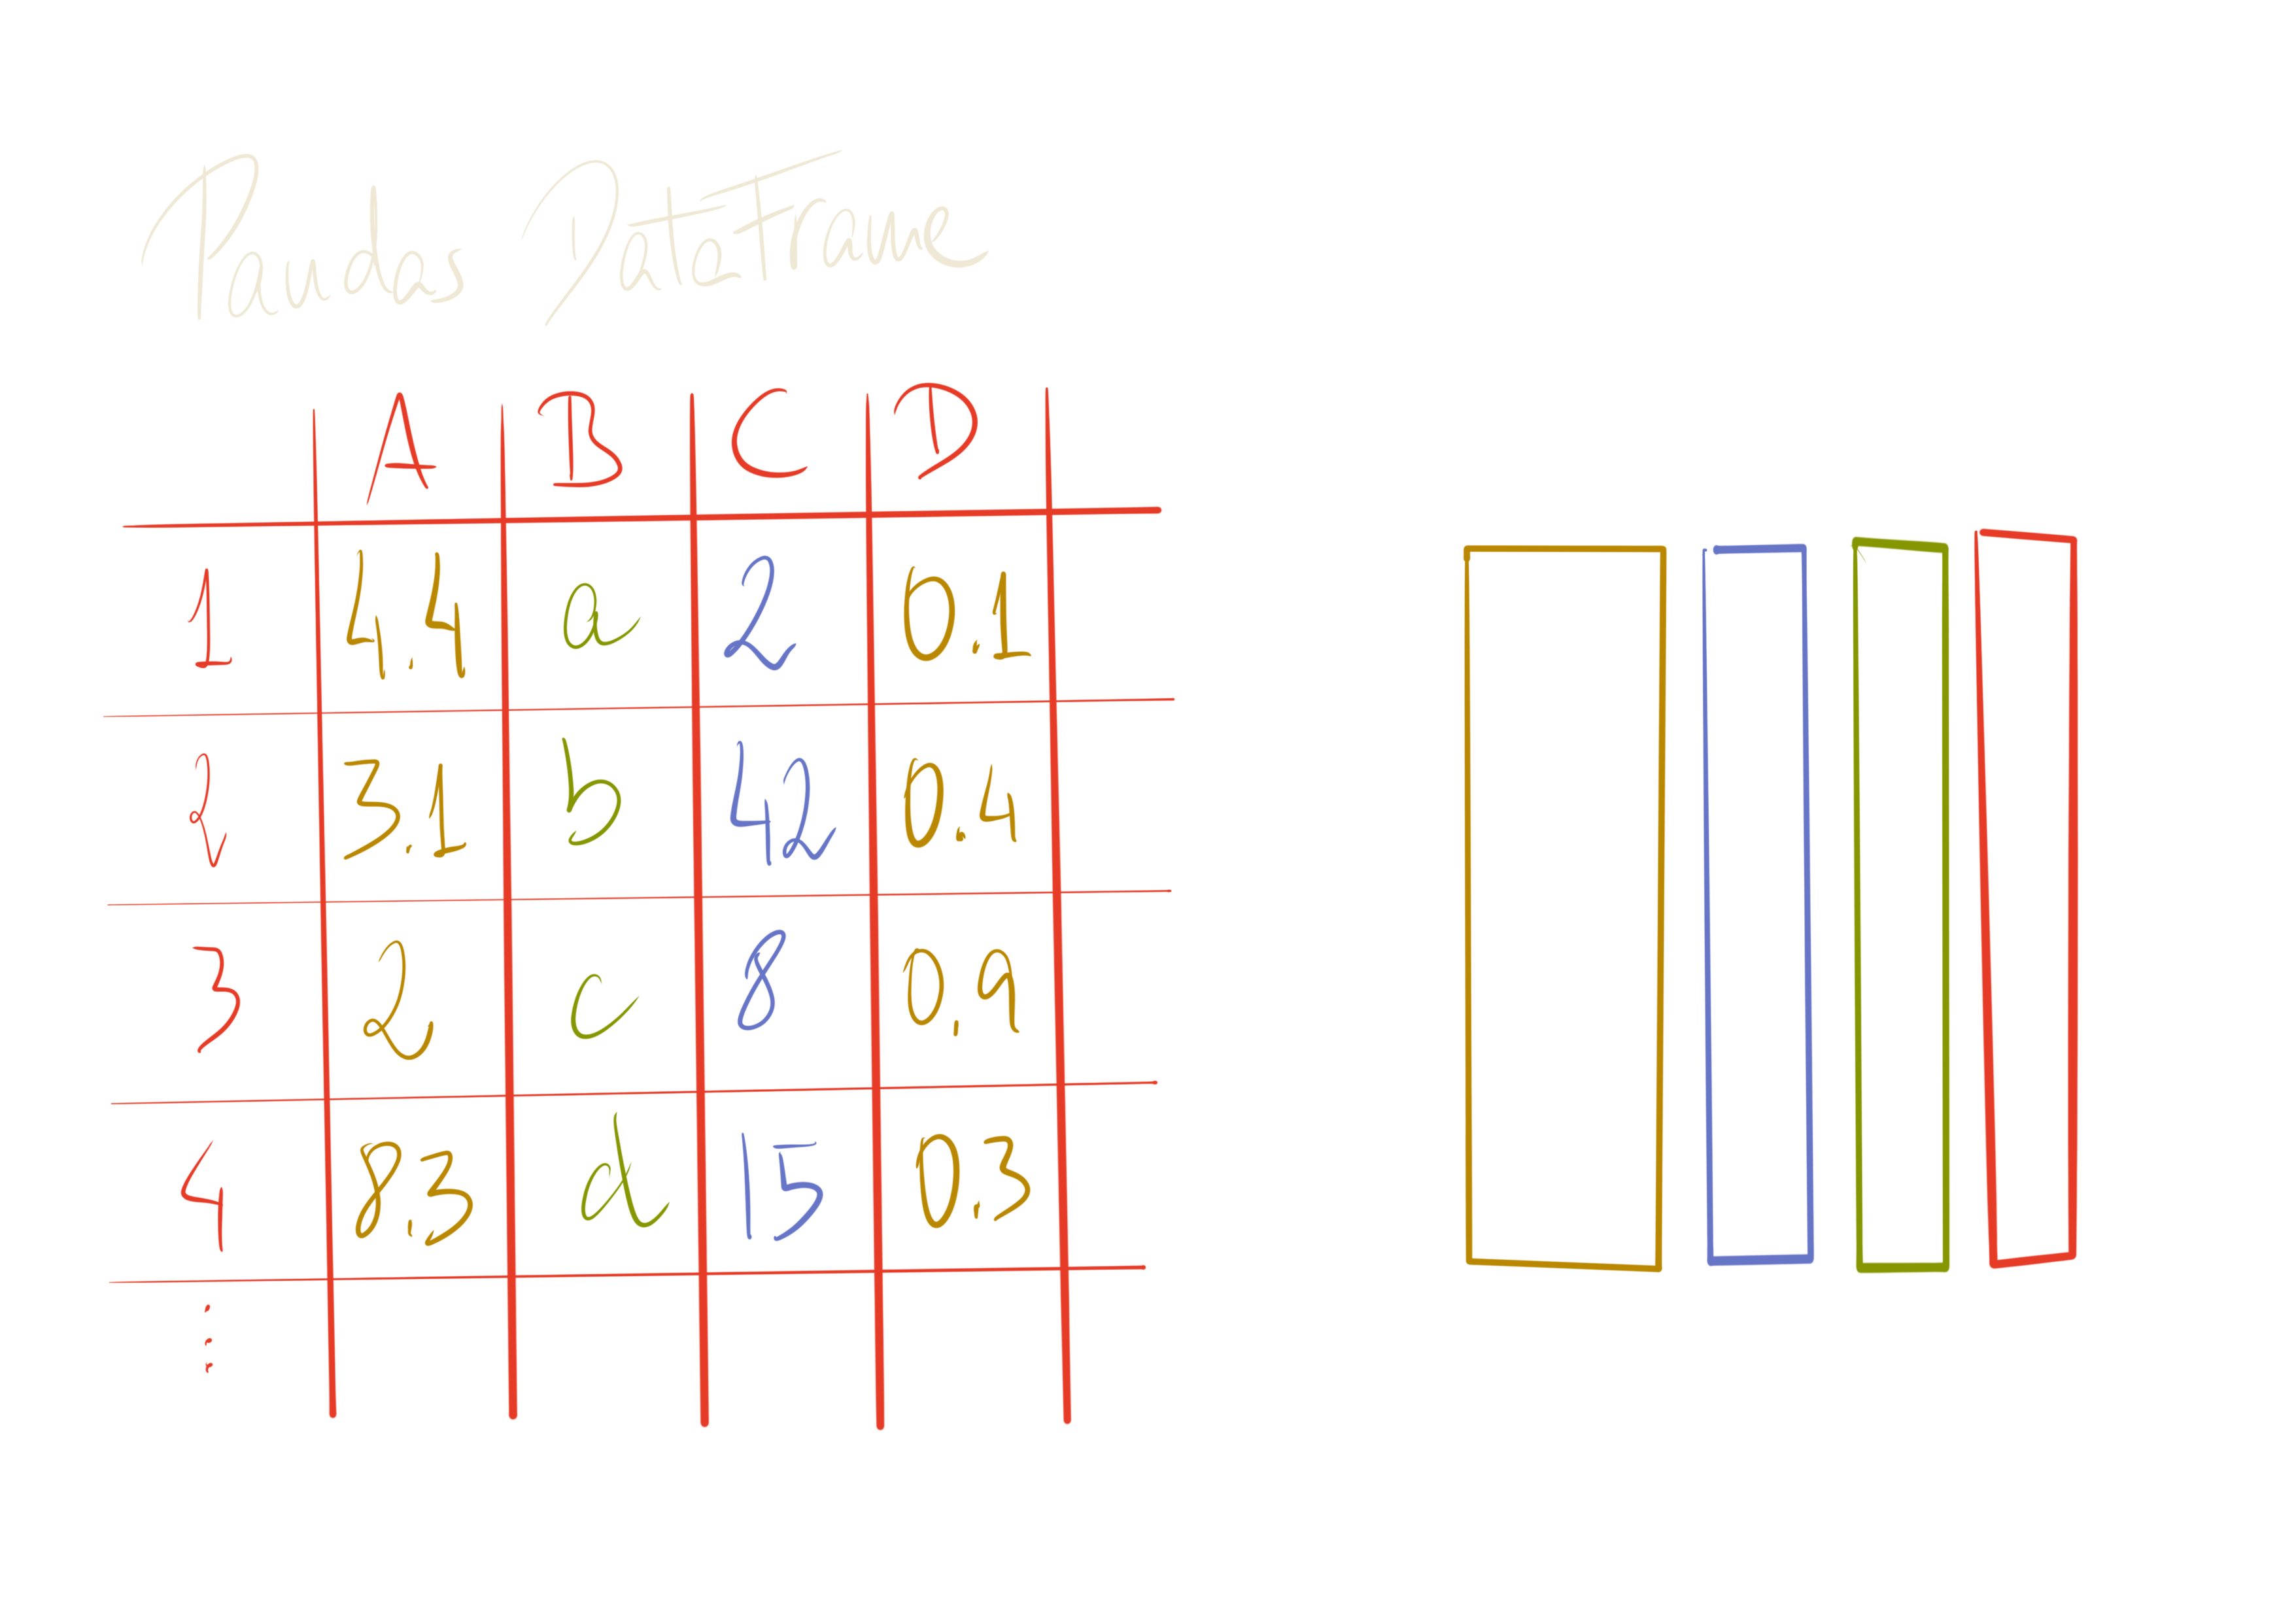 Pandas DataFrame
A B C D
1 4.4 a 2 0.1
2 3.1 b 42 0.4
3 2 c 8 0.9
4 8.3 d 15 0.3
⋮